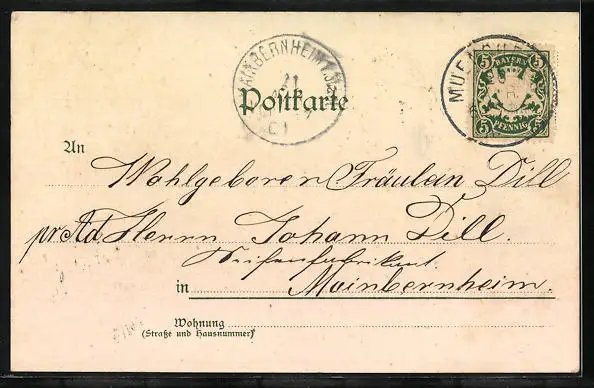 MAINBERNHEIM
21
Postkarte
MUENCHEN
5 BAYERN 5
5 PFENNIG 5
An
Wohlgeboren Fräulein Dill
pr. Ad. Herrn Johann Dill.
Seifenfabrikant.
in Mainbernheim.
Wohnung
(Straße und Hausnummer)